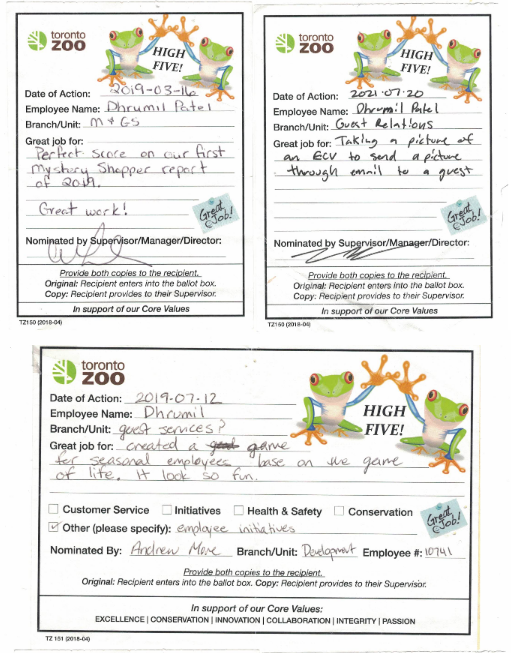 toronto
ZOO
HIGH
FIVE!
Date of Action: 2019-03-16
Employee Name: Dhrumil Patel
Branch/Unit: M & GS
Great job for:
Perfect score on our first
Mystery Shopper report
of 2019.
Great work!
Great Job!
Nominated by Supervisor/Manager/Director:
Provide both copies to the recipient.
Original: Recipient enters into the ballot box.
Copy: Recipient provides to their Supervisor.
In support of our Core Values
TZ150 (2018-04)
toronto
ZOO
HIGH
FIVE!
Date of Action: 2021-07-20
Employee Name: Dhrumil Patel
Branch/Unit: Guest Relations
Great job for: Taking a picture of
an ECV to send a picture
through email to a guest
Great Job!
Nominated by Supervisor/Manager/Director:
Provide both copies to the recipient.
Original: Recipient enters into the ballot box.
Copy: Recipient provides to their Supervisor.
In support of our Core Values
TZ150 (2018-04)
toronto
ZOO
HIGH
FIVE!
Date of Action: 2019-07-12
Employee Name: Dhrumil
Branch/Unit: guest services?
Great job for: created a game
for seasonal employees base on the game
of life. It look so fun.
Customer Service Initiatives Health & Safety Conservation
Other (please specify): employee initiatives
Great Job!
Nominated By: Andrew Branch/Unit: Development Employee #: 10741
Provide both copies to the recipient.
Original: Recipient enters into the ballot box. Copy: Recipient provides to their Supervisor.
In support of our Core Values:
EXCELLENCE | CONSERVATION | INNOVATION | COLLABORATION | INTEGRITY | PASSION
TZ 151 (2018-04)